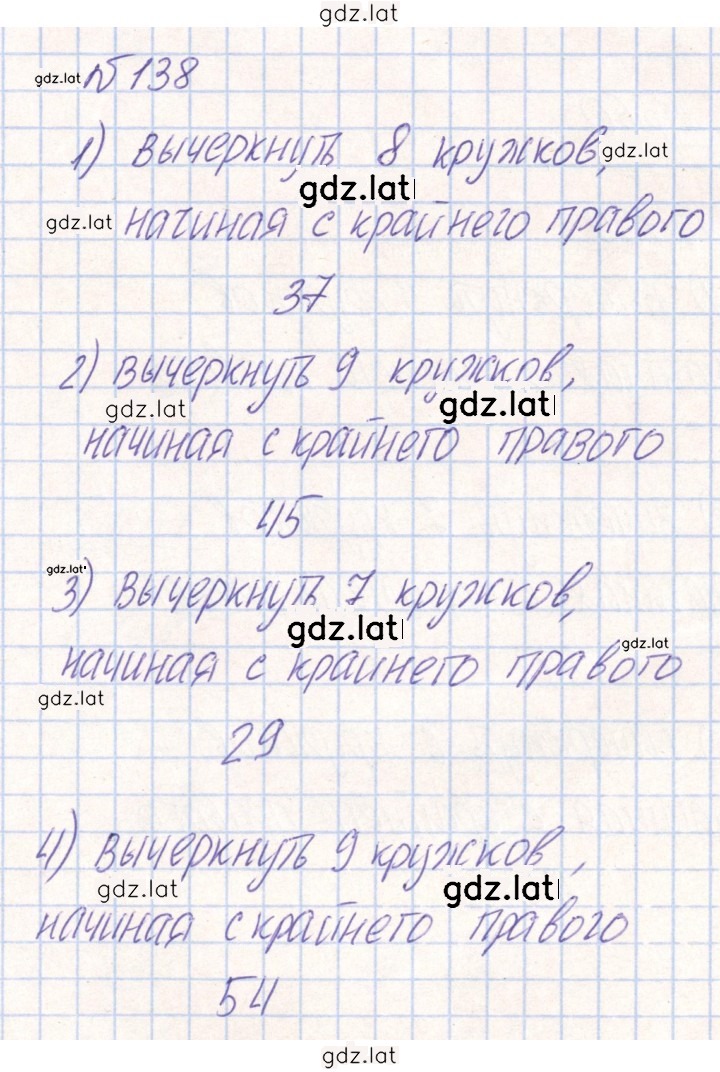 gdz.lat
gdz.lat №138
1) вычеркнуть 8 кружков, gdz.lat
gdz.lat
gdz.lat начиная с крайнего правого
37
2) вычеркнуть 9 кружков,
gdz.lat gdz.lat
начиная с крайнего правого
45
gdz.lat
3) вычеркнуть 7 кружков,
gdz.lat gdz.lat
начиная с крайнего правого
gdz.lat
29
4) вычеркнуть 9 кружков,
gdz.lat gdz.lat
начиная с крайнего правого
54
gdz.lat